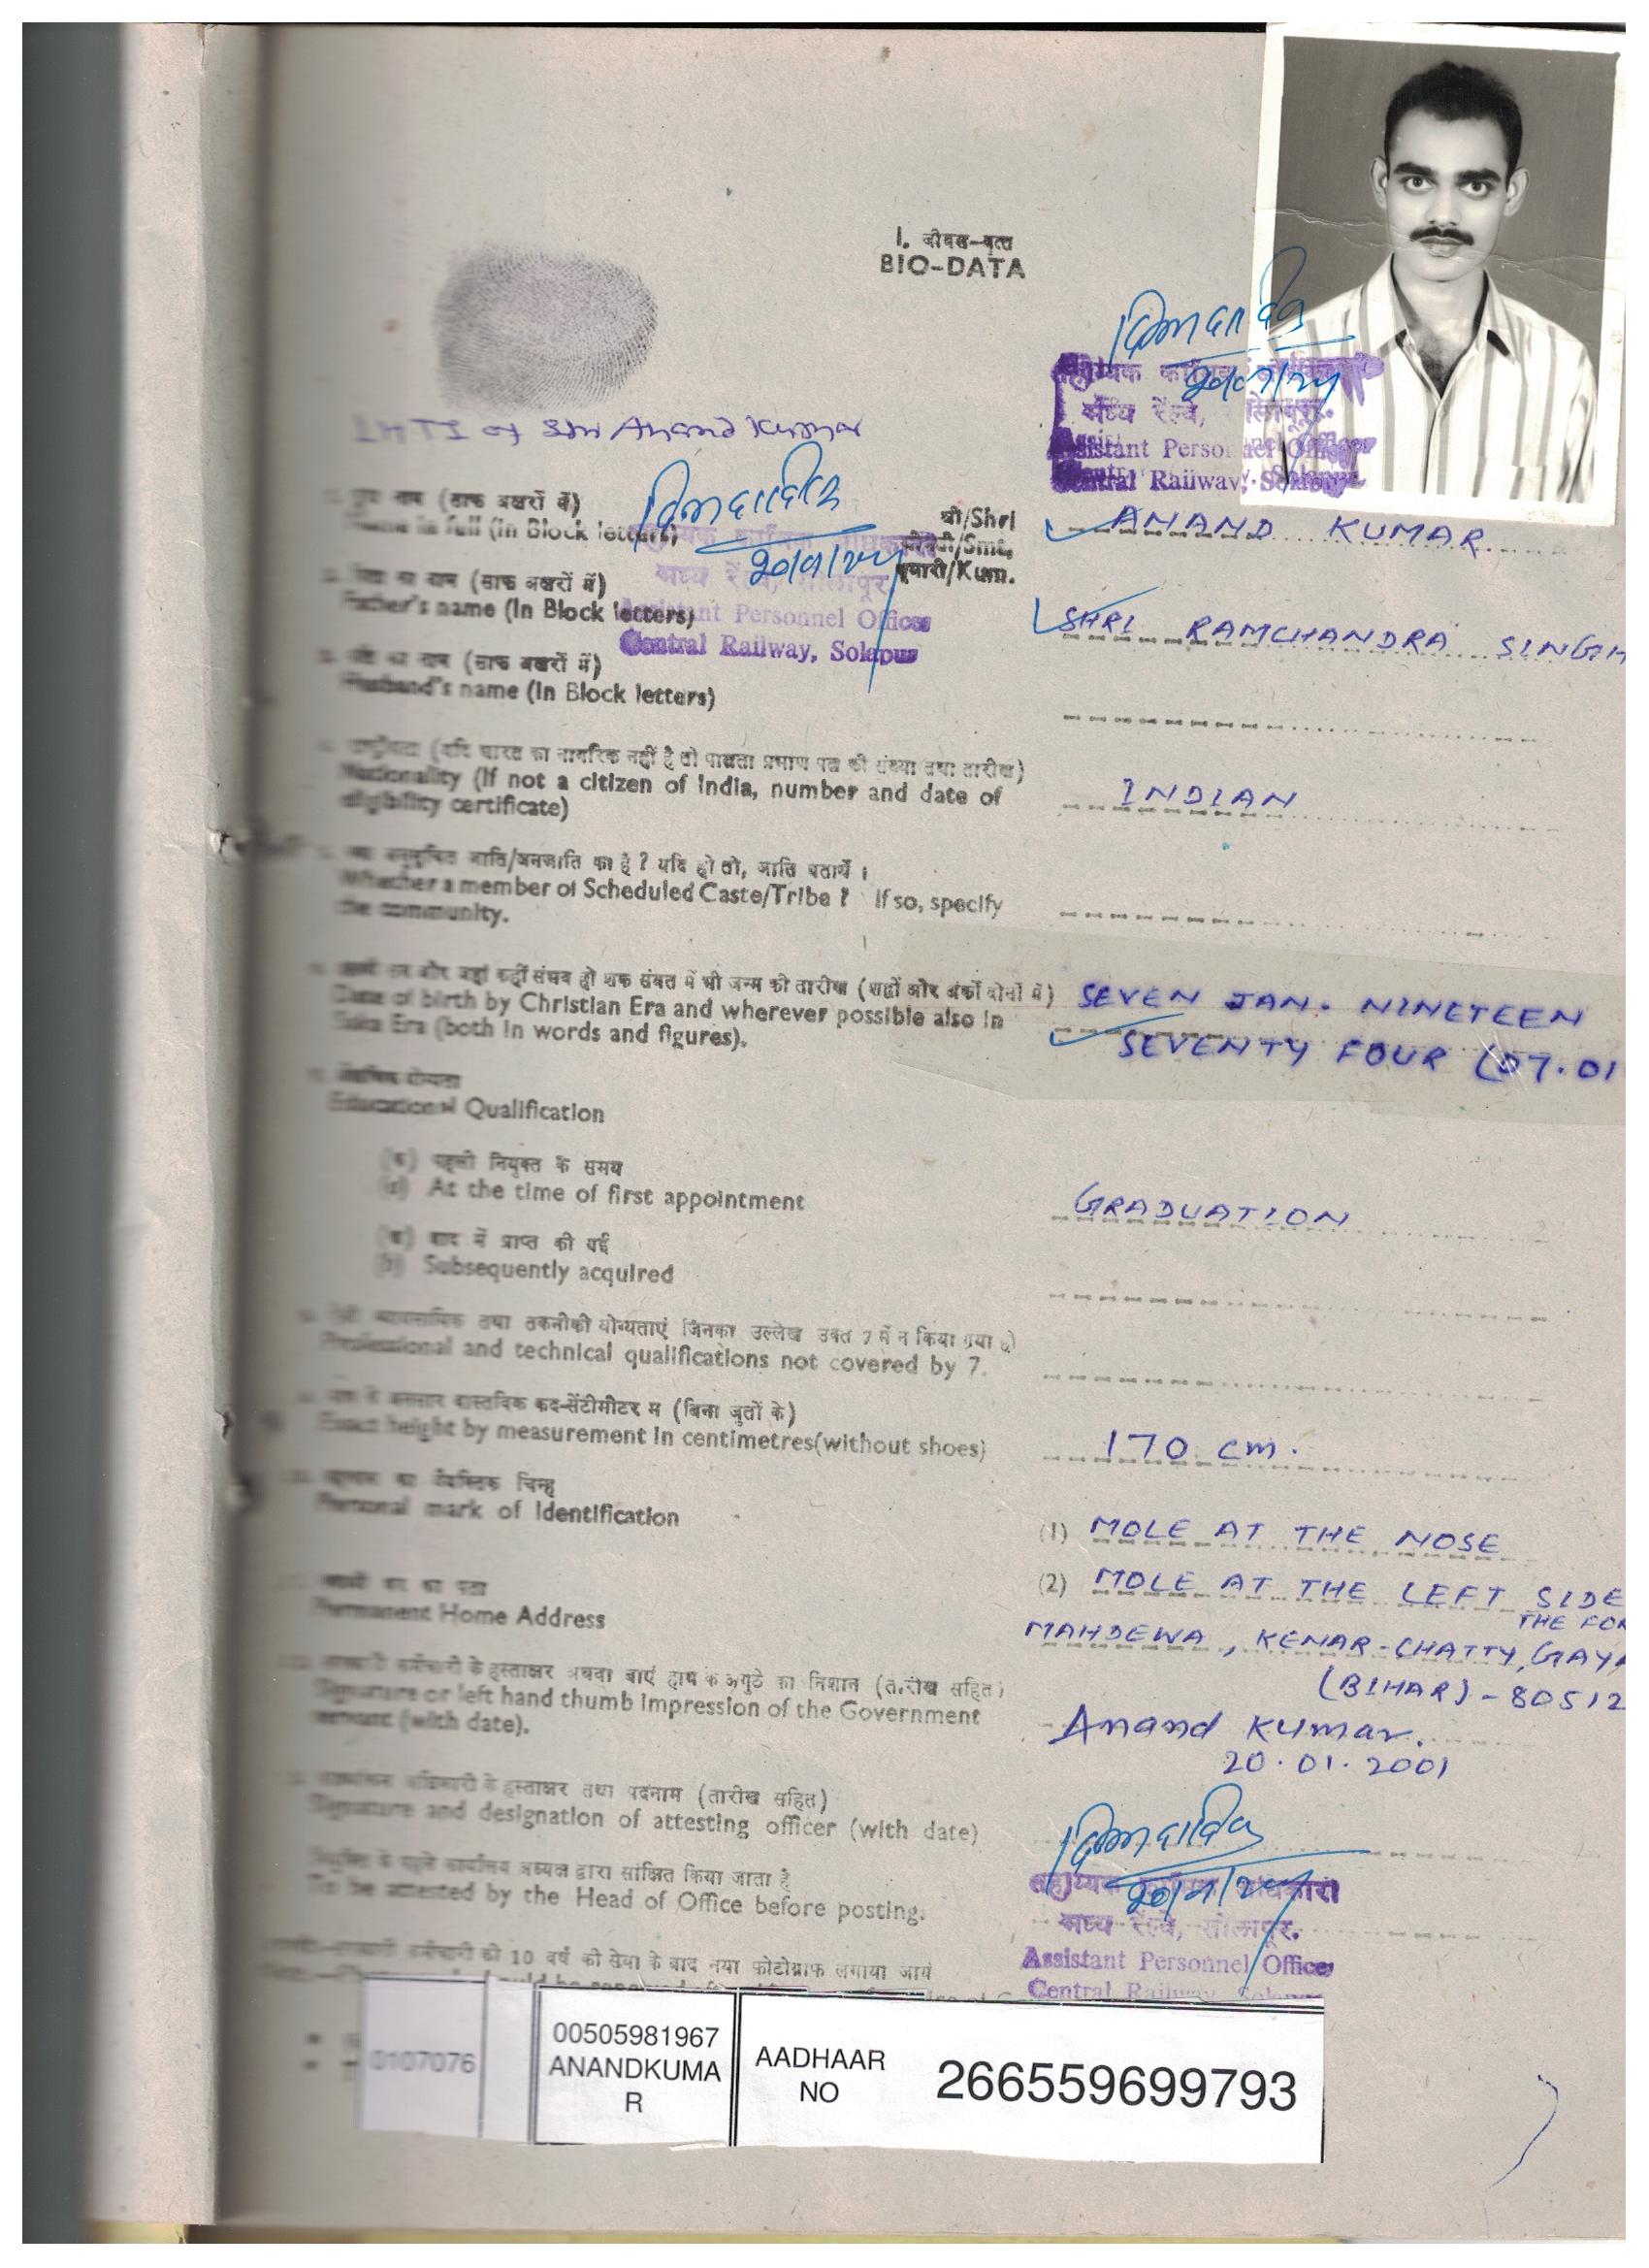 I. जीवन-वृत्त
BIO-DATA
LHTI of Shri Anand Kumar
सहाय्यक कार्मिक अधिकारी
मध्य रेल्वे, सोलापूर.
Assistant Personnel Officer
Central Railway, Solapur
नाम (साफ अक्षरों में)
Name in full (In Block letters)
श्री/Shri
श्रीमती/Smt.
कुमारी/Kum.
ANAND KUMAR
पिता का नाम (साफ अक्षरों में)
Father's name (In Block letters)
SHRI RAMCHANDRA SINGH
सहाय्यक कार्मिक अधिकारी
मध्य रेल्वे, सोलापूर
Assistant Personnel Officer
Central Railway, Solapur
पति का नाम (साफ अक्षरों में)
Husband's name (In Block letters)
राष्ट्रीयता (यदि भारत का नागरिक नहीं है तो पात्रता प्रमाण पत्र की संख्या तथा तारीख)
Nationality (If not a citizen of India, number and date of
eligibility certificate)
INDIAN
क्या अनुसूचित जाति/जनजाति का है ? यदि हो तो, जाति बतायें ।
Whether a member of Scheduled Caste/Tribe ? If so, specify
the community.
और जहां कहीं संभव हो शक संवत में भी जन्म की तारीख (शब्दों और अंकों दोनों में)
Date of birth by Christian Era and wherever possible also in
Saka Era (both in words and figures).
SEVEN JAN. NINETEEN
SEVENTY FOUR (07.01
शैक्षणिक योग्यता
Educational Qualification
(क) पहली नियुक्त के समय
(a) At the time of first appointment
GRADUATION
(ख) बाद में प्राप्त की गई
(b) Subsequently acquired
व्यावसायिक तथा तकनीकी योग्यताएं जिनका उल्लेख उक्त 7 में न किया गया हो
Professional and technical qualifications not covered by 7.
वास्तविक कद-सेंटीमीटर म (बिना जुतों के)
Exact height by measurement in centimetres(without shoes)
170 cm.
पहचान का वैयक्तिक चिन्ह
Personal mark of Identification
(1) MOLE AT THE NOSE
(2) MOLE AT THE LEFT SIDE
THE FOR
स्थायी घर का पता
Permanent Home Address
MAHDEWA, KENAR-CHATTY, GAYA
(BIHAR) - 80512
सरकारी कर्मचारी के हस्ताक्षर अथवा बाएं हाथ के अंगुठे का निशान (तारीख सहित)
Signature or left hand thumb impression of the Government
servant (with date).
Anand Kumar.
20.01.2001
अधिकारी के हस्ताक्षर तथा पदनाम (तारीख सहित)
Signature and designation of attesting officer (with date)
नियुक्ति के पहले कार्यालय अध्यक्ष द्वारा साक्षित किया जाता है
To be attested by the Head of Office before posting.
सहाय्यक कार्मिक अधिकारी
मध्य रेल्वे, सोलापूर.
Assistant Personnel Officer
Central Railway, Solapur
सरकारी कर्मचारी की 10 वर्ष की सेवा के बाद नया फोटोग्राफ लगाया जाये
0107076
00505981967
ANANDKUMA
R
AADHAAR
NO
266559699793